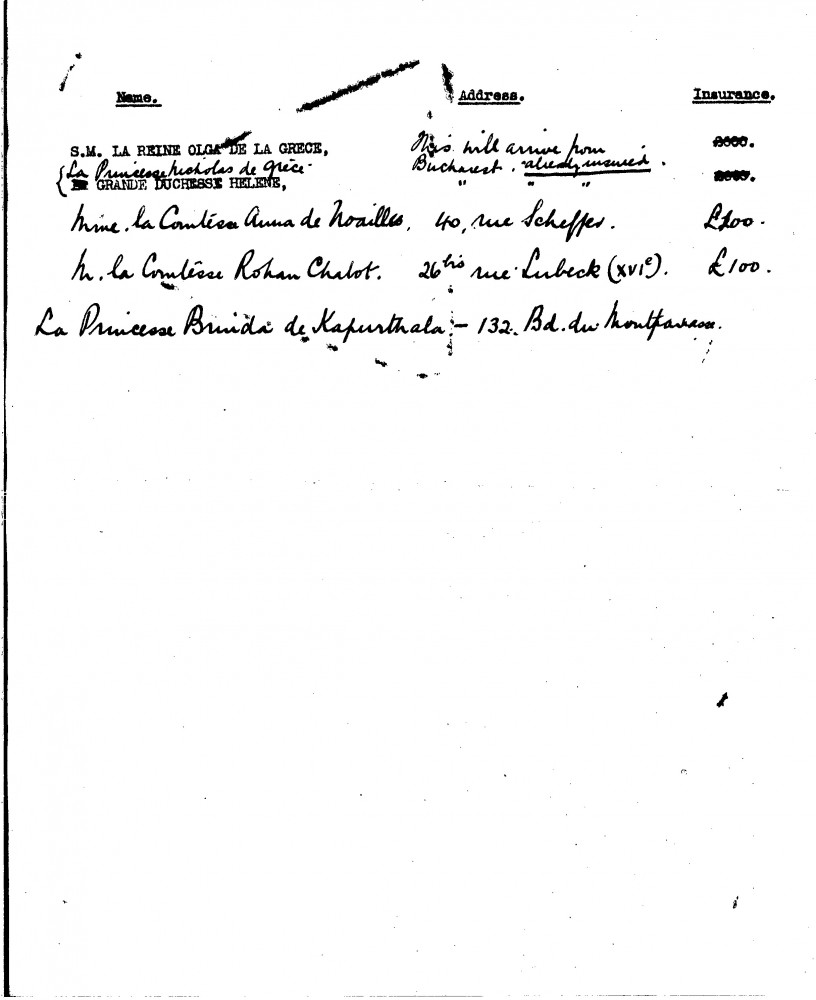 Name. Address. Insurance.
S.M. LA REINE OLGA DE LA GRECE, This will arrive from
La Princesse Nicholas de Grèce Bucharest. already insured.
GRANDE DUCHESSE HELENE, " " "
Mme. la Comtesse Anna de Noailles, 40, rue Scheffer. £200.
M. la Comtesse Rohan Chabot. 26 bis rue Lubeck (XVIe). £100.
La Princesse Brinda de Kapurthala - 132. Bd. du Montparnasse.